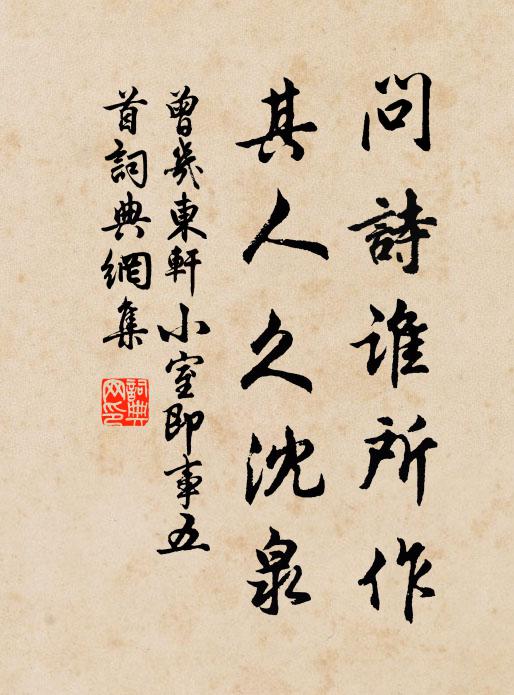 問詩誰所作
其人久沈泉
曾幾東軒小室即事五
首詞典網集
詞典網印